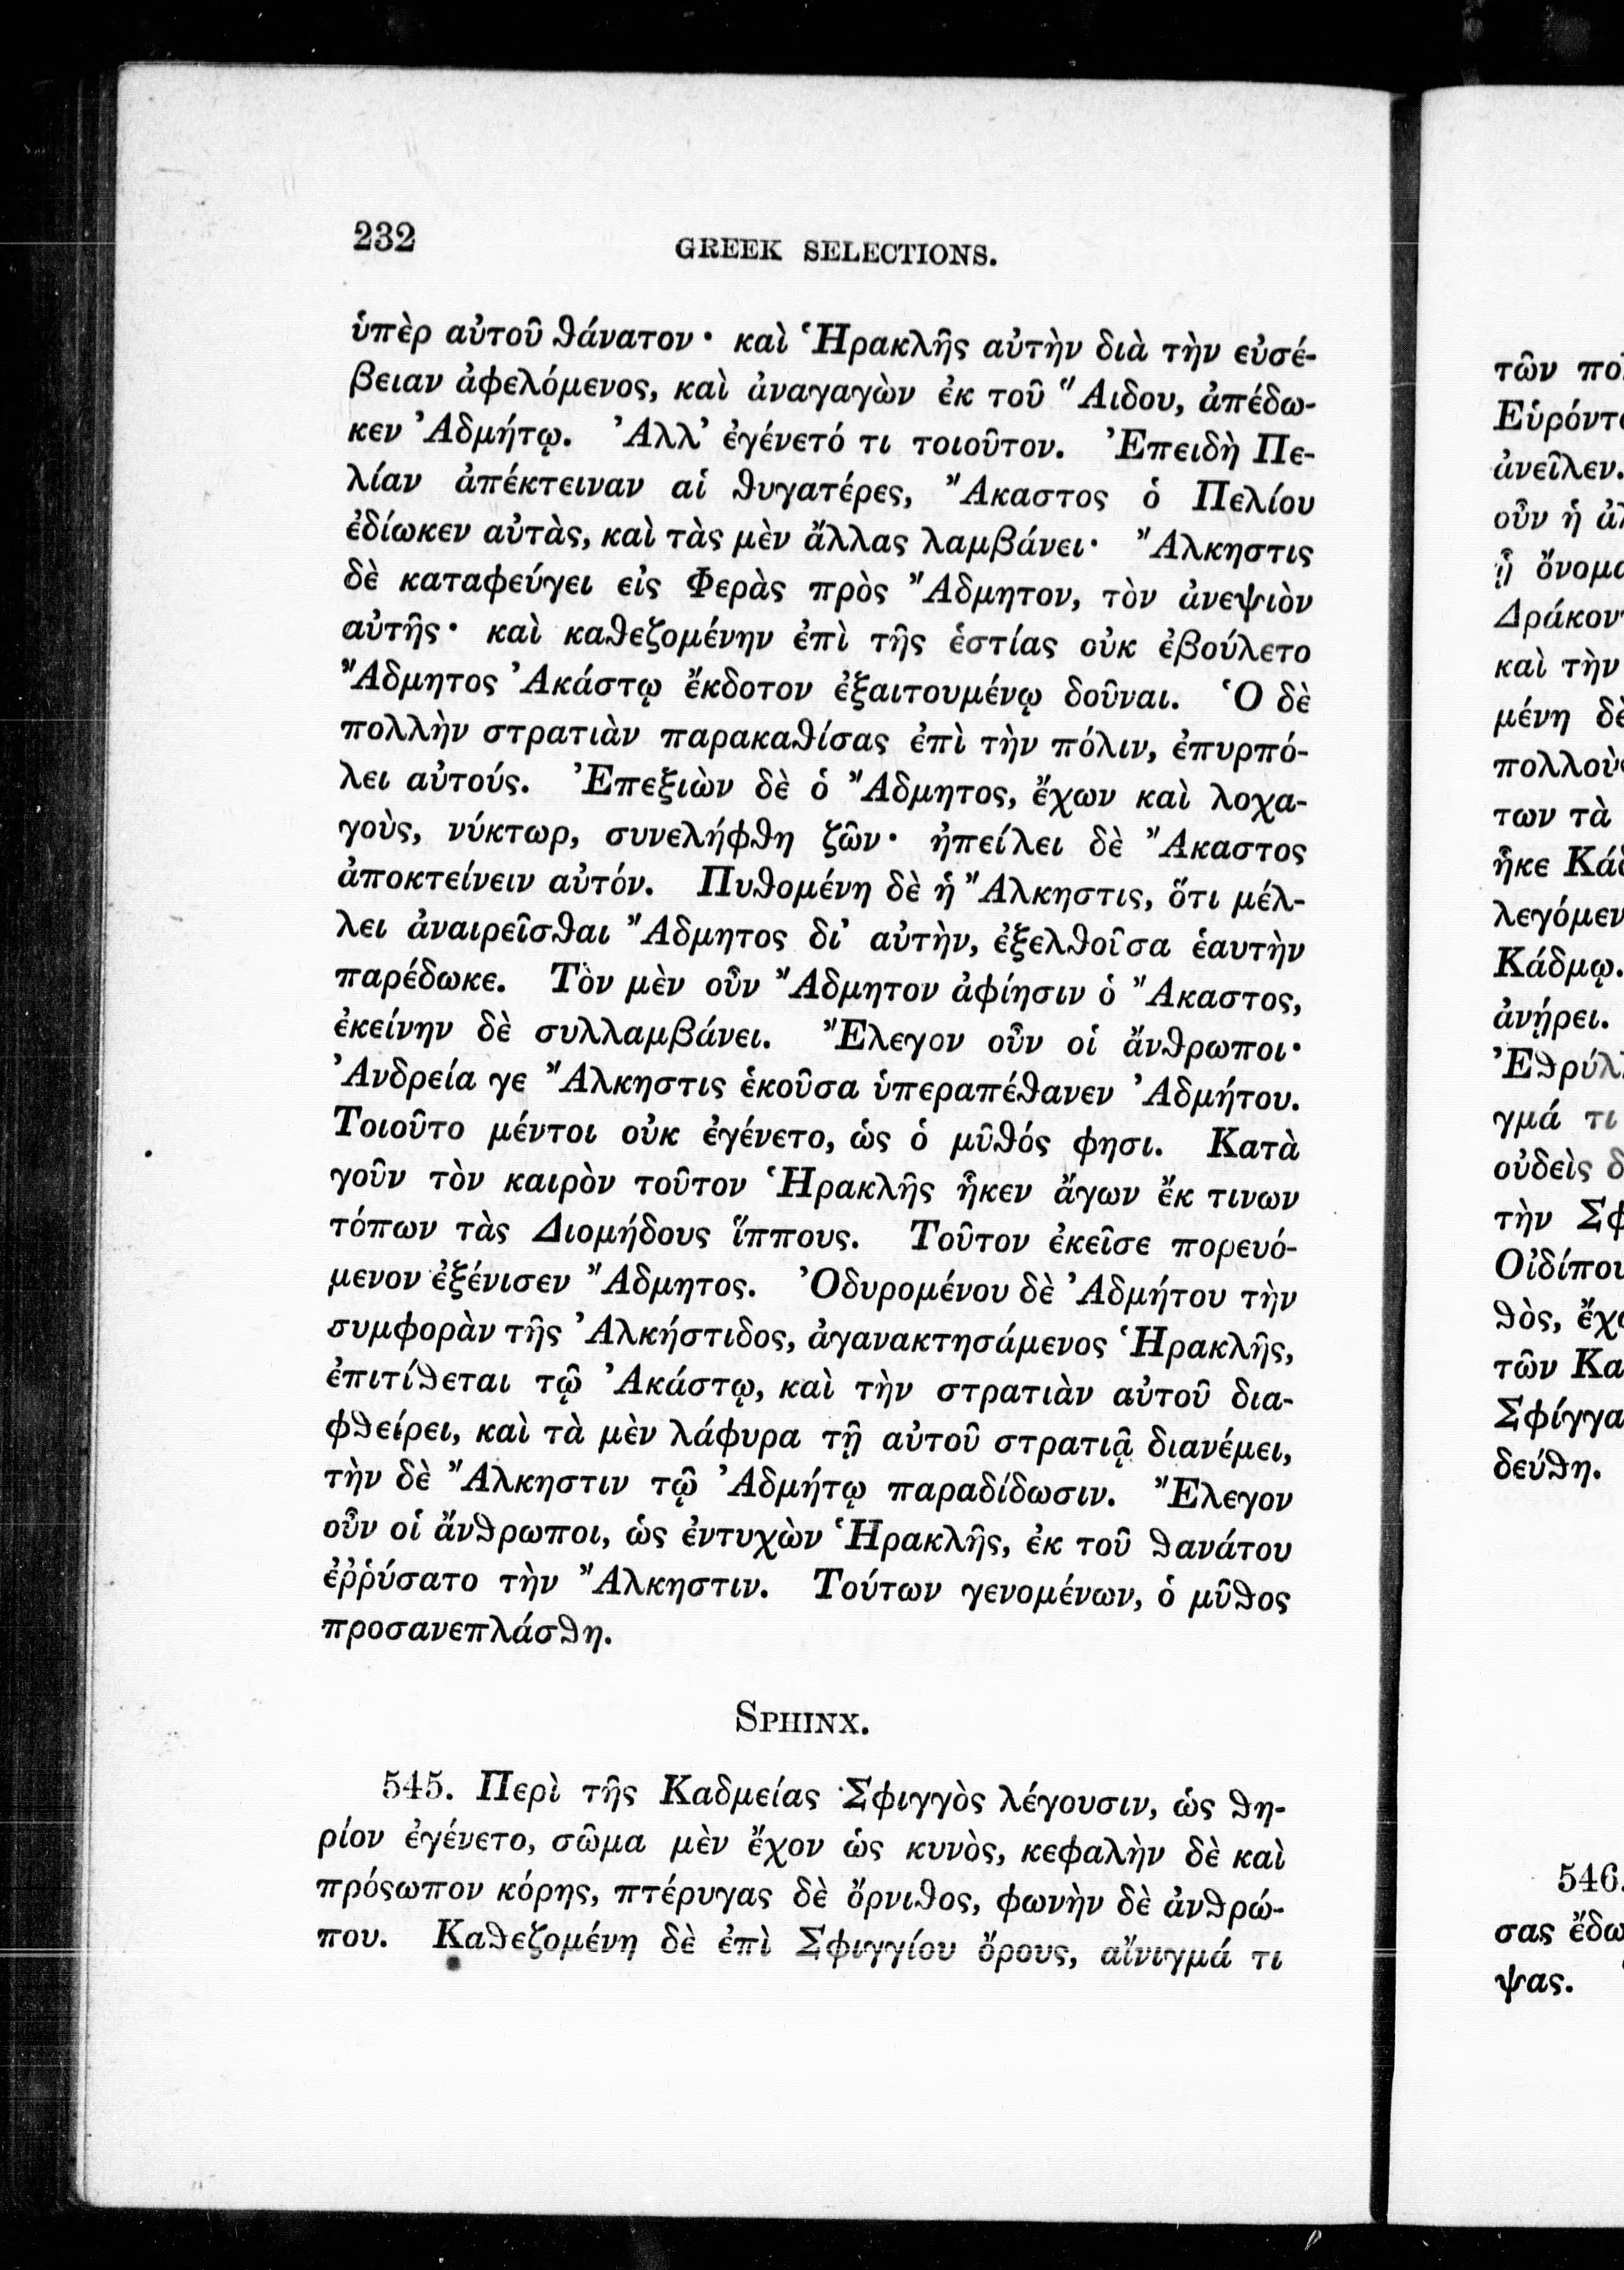 232
GREEK SELECTIONS.
ὑπὲρ αὐτοῦ ϑάνατον· καὶ Ἡρακλῆς αὐτὴν διὰ τὴν εὐσέ-
βειαν ἀφελόμενος, καὶ ἀναγαγὼν ἐκ τοῦ Ἅιδου, ἀπέδω-
κεν Ἀδμήτῳ. Ἀλλ’ ἐγένετό τι τοιοῦτον. Ἐπειδὴ Πε-
λίαν ἀπέκτειναν αἱ ϑυγατέρες, Ἄκαστος ὁ Πελίου
ἐδίωκεν αὐτὰς, καὶ τὰς μὲν ἄλλας λαμβάνει· Ἄλκηστις
δὲ καταφεύγει εἰς Φερὰς πρὸς Ἄδμητον, τὸν ἀνεψιὸν
αὐτῆς· καὶ καϑεζομένην ἐπὶ τῆς ἑστίας οὐκ ἐβούλετο
Ἄδμητος Ἀκάστῳ ἔκδοτον ἐξαιτουμένῳ δοῦναι. Ὁ δὲ
πολλὴν στρατιὰν παρακαϑίσας ἐπὶ τὴν πόλιν, ἐπυρπό-
λει αὐτούς. Ἐπεξιὼν δὲ ὁ Ἄδμητος, ἔχων καὶ λοχα-
γοὺς, νύκτωρ, συνελήφϑη ζῶν· ἠπείλει δὲ Ἄκαστος
ἀποκτείνειν αὐτόν. Πυϑομένη δὲ ἡ Ἄλκηστις, ὅτι μέλ-
λει ἀναιρεῖσϑαι Ἄδμητος δι’ αὐτὴν, ἐξελϑοῖσα ἑαυτὴν
παρέδωκε. Τὸν μὲν οὖν Ἄδμητον ἀφίησιν ὁ Ἄκαστος,
ἐκείνην δὲ συλλαμβάνει. Ἔλεγον οὖν οἱ ἄνϑρωποι·
Ἀνδρεία γε Ἄλκηστις ἑκοῦσα ὑπεραπέϑανεν Ἀδμήτου.
Τοιοῦτο μέντοι οὐκ ἐγένετο, ὡς ὁ μῦϑός φησι. Κατὰ
γοῦν τὸν καιρὸν τοῦτον Ἡρακλῆς ἧκεν ἄγων ἔκ τινων
τόπων τὰς Διομήδους ἵππους. Τοῦτον ἐκεῖσε πορευό-
μενον ἐξένισεν Ἄδμητος. Ὀδυρομένου δὲ Ἀδμήτου τὴν
συμφορὰν τῆς Ἀλκήστιδος, ἀγανακτησάμενος Ἡρακλῆς,
ἐπιτίϑεται τῷ Ἀκάστῳ, καὶ τὴν στρατιὰν αὐτοῦ δια-
φϑείρει, καὶ τὰ μὲν λάφυρα τῇ αὐτοῦ στρατιᾷ διανέμει,
τὴν δὲ Ἄλκηστιν τῷ Ἀδμήτῳ παραδίδωσιν. Ἔλεγον
οὖν οἱ ἄνϑρωποι, ὡς ἐντυχὼν Ἡρακλῆς, ἐκ τοῦ ϑανάτου
ἐῤῥύσατο τὴν Ἄλκηστιν. Τούτων γενομένων, ὁ μῦϑος
προσανεπλάσϑη.
SPHINX.
545. Περὶ τῆς Καδμείας Σφιγγὸς λέγουσιν, ὡς ϑη-
ρίον ἐγένετο, σῶμα μὲν ἔχον ὡς κυνὸς, κεφαλὴν δὲ καὶ
πρόςωπον κόρης, πτέρυγας δὲ ὄρνιϑος, φωνὴν δὲ ἀνϑρώ-
που. Καϑεζομένη δὲ ἐπὶ Σφιγγίου ὄρους, αἴνιγμά τι
τῶν
ἀνεῖλεν.
οὖν ἡ
ᾗ
καὶ τὴν
μένη
των τὰ
ἧκε
Κάδμῳ.
ἀνῄρει.
γμά τι
οὐδεὶς
τὴν
ϑὸς,
τῶν
δεύϑη.
546.
σας
ψας.